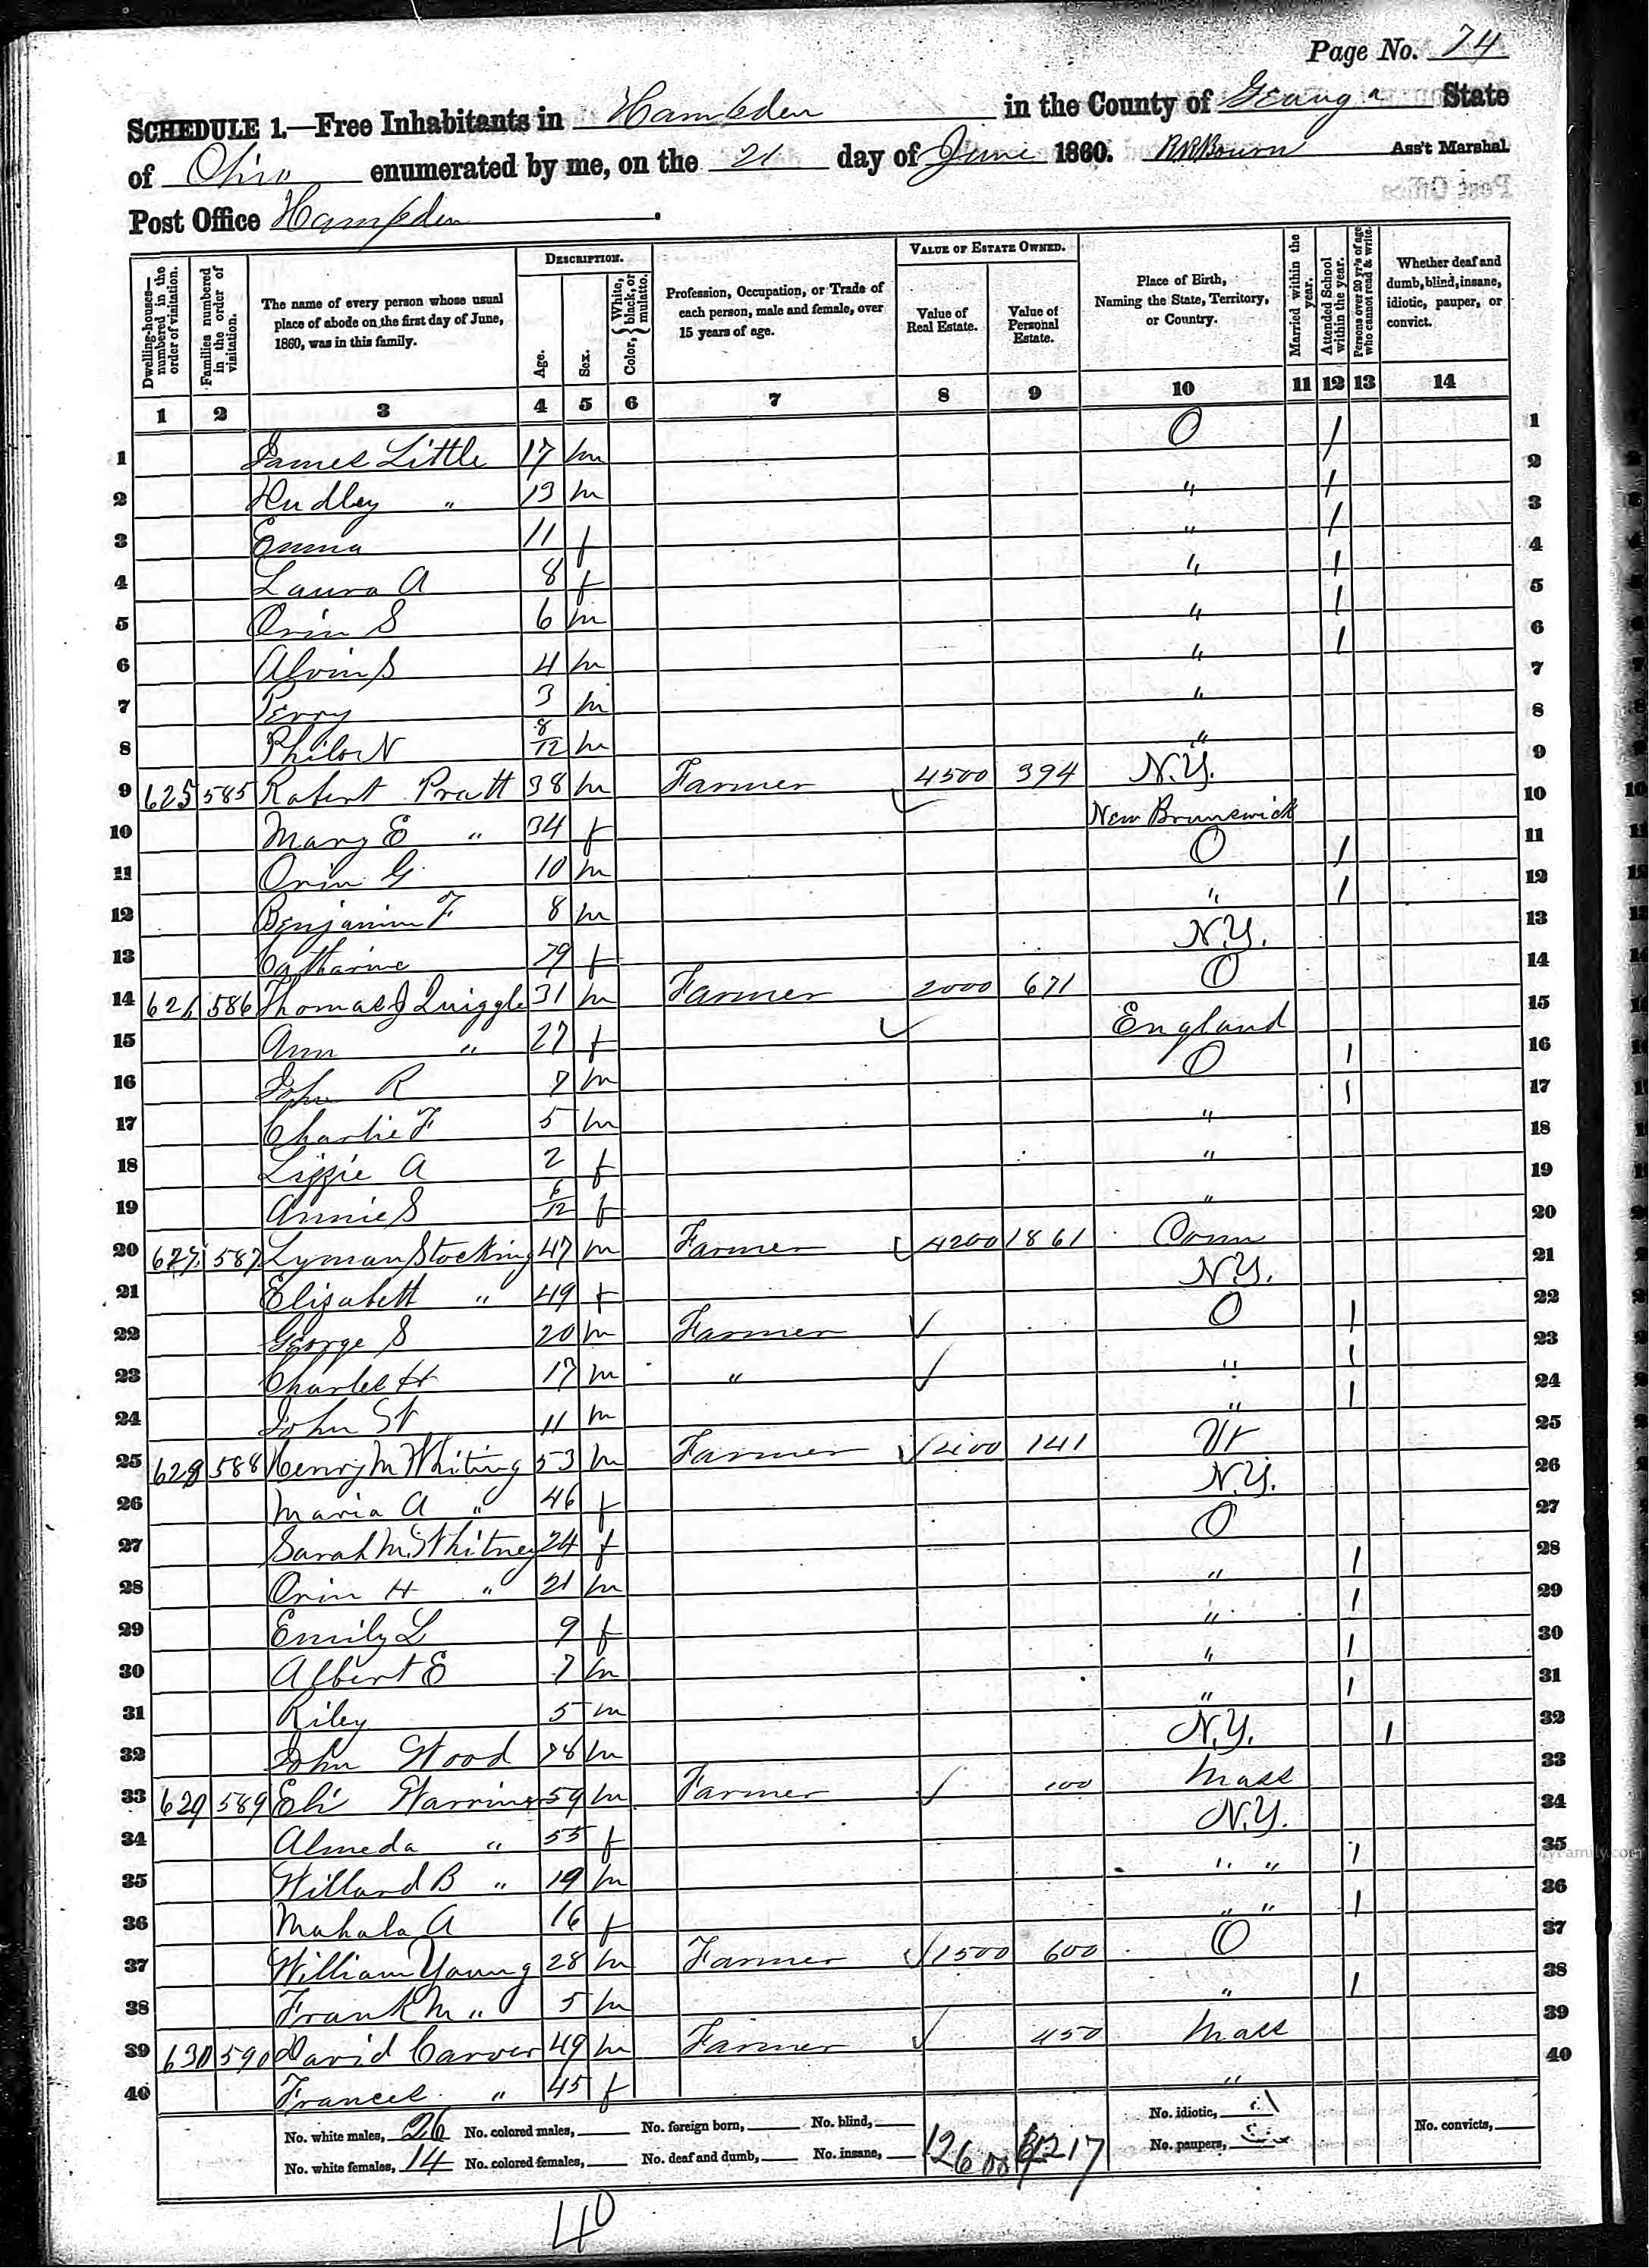 Page No. 74
SCHEDULE 1.—Free Inhabitants in Hambden in the County of Geauga State
of Ohio enumerated by me, on the 21 day of June 1860. RR Bourn Ass't Marshal.
Post Office Hampden.
DESCRIPTION. VALUE OF ESTATE OWNED.
Dwelling-houses—numbered in the order of visitation. Families numbered in the order of visitation. The name of every person whose usual place of abode on the first day of June, 1860, was in this family. Age. Sex. Color, { White, black, or mulatto. Profession, Occupation, or Trade of each person, male and female, over 15 years of age. Value of Real Estate. Value of Personal Estate. Place of Birth, Naming the State, Territory, or Country. Married within the year. Attended School within the year. Persons over 20 yr's of age who cannot read & write. Whether deaf and dumb, blind, insane, idiotic, pauper, or convict.
1 2 3 4 5 6 7 8 9 10 11 12 13 14
1 James Little 17 m O / 1
2 " 13 m " / 2
3 Emma 11 f " / 3
4 Laura A 8 f " / 4
5 Orin S 6 m " / 5
6 Alvin S 4 m " / 6
7 Perry 3 m " 7
8 Philo N 8/12 m " 8
9 625 585 Robert Pratt 38 m Farmer 4500 394 N.Y. 9
10 Mary E " 34 f New Brunswick 10
11 Orin G 10 m O / 11
12 Benjamin F 8 m " / 12
13 Catharine 79 f N.Y. 13
14 626 586 Thomas J Quiggle 31 m Farmer 2000 671 O 14
15 Ann " 27 f England 15
16 John R 7 m O / 16
17 Charlie F 5 m " / 17
18 Lizzie A 2 f " 18
19 Annie S 6/12 f " 19
20 627 587 Lyman Stocking 47 m Farmer 4200 1861 Conn 20
21 Elizabeth " 49 f N.Y. 21
22 George S 20 m Farmer O / 22
23 Charles H 17 m " " / 23
24 John W 11 m " / 24
25 628 588 Henry M Whiting 53 m Farmer 141 Vt 25
26 Maria A " 46 f N.Y. 26
27 Sarah M. Whitney 24 f O 27
28 Orin H " 21 m " / 28
29 Emily L 9 f " / 29
30 Albert E 7 m " / 30
31 Riley 5 m " / 31
32 John Wood m N.Y. / 32
33 629 589 Eli Warriner 59 m Farmer 100 Mass 33
34 Almeda " 55 f N.Y. 34
35 Willard B " 19 m " " / 35
36 Mahala A 16 f " " / 36
37 William Young 28 m Farmer 1500 600 O 37
38 Frank M " 5 m " / 38
39 630 590 David Carver 49 m Farmer 450 Mass 39
40 Frances " 45 f " 40
No. white males, 26 No. colored males, No. foreign born, No. blind, No. idiotic,
No. white females, 14 No. colored females, No. deaf and dumb, No. insane, No. paupers, No. convicts,
40